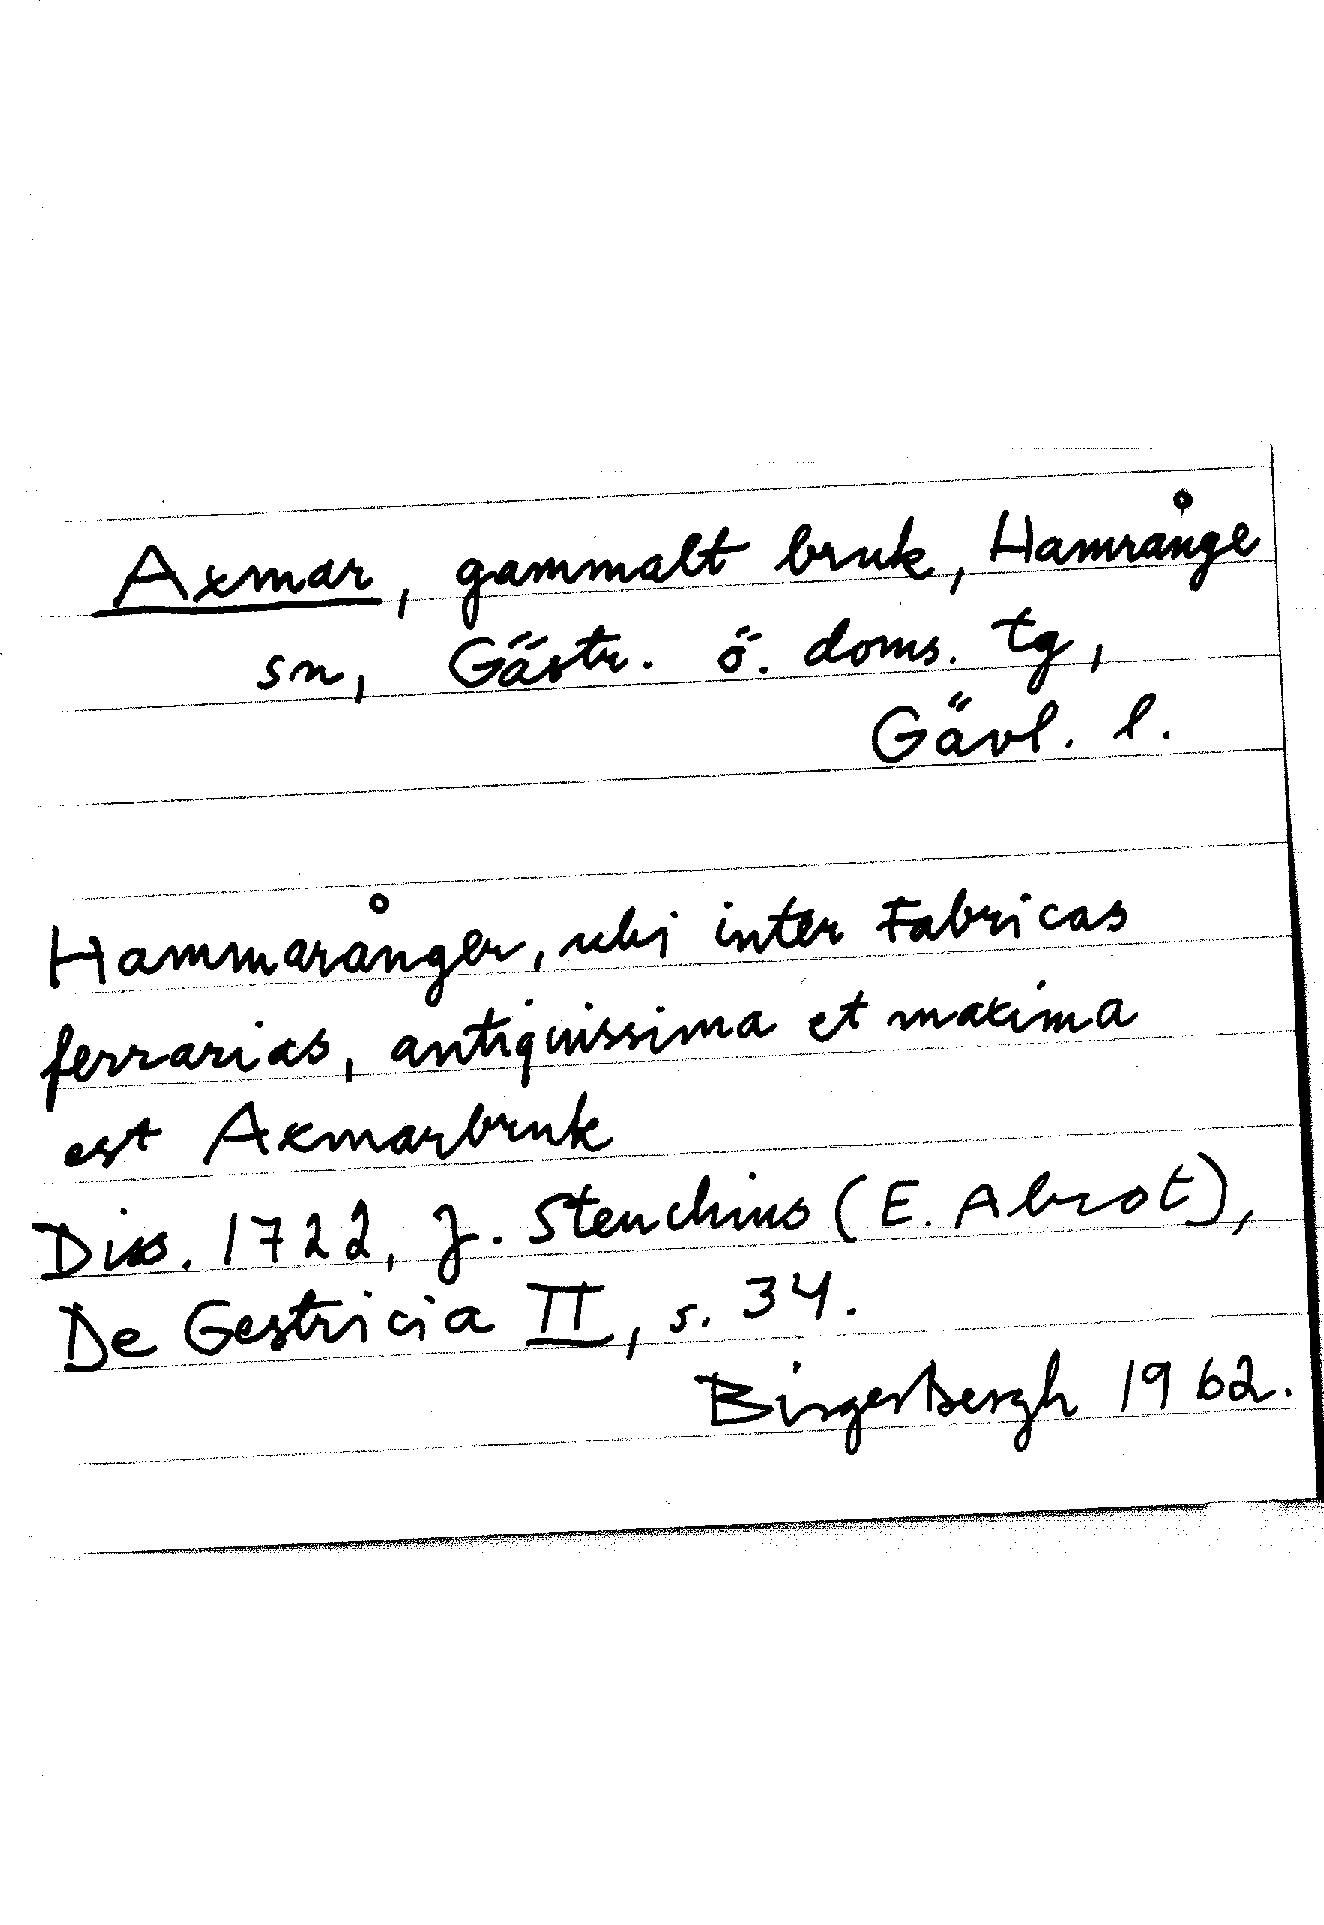 Axmar, gammalt bruk, Hamrånge
sn, Gästr. ö. doms. tg,
Gävl. l.
Hammarånger, ubi inter Fabricas
ferrarias, antiquissima et maxima
est Axmarbruk
Diss. 1722, J. Stenchius (E. Abrot),
De Gestricia II, s. 34.
Birgerbergh 1962.